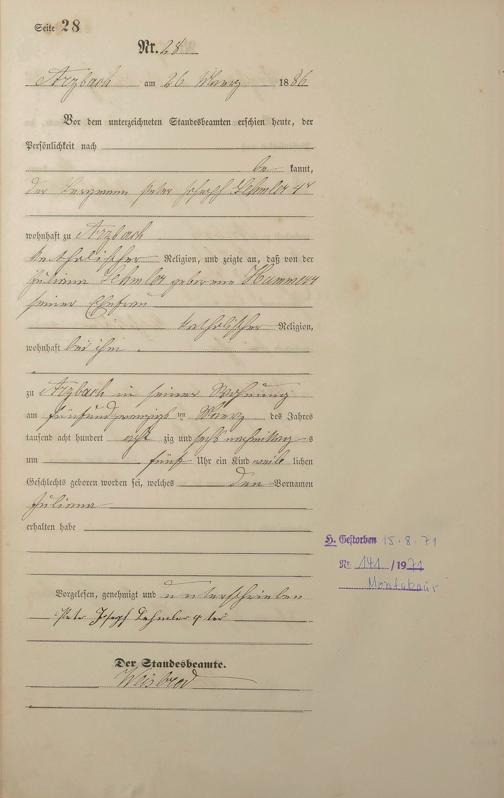 Seite 28
Nr. 28
Arzbach am 26 Maerz 1886
Vor dem unterzeichneten Standesbeamten erschien heute, der
Persönlichkeit nach
be kannt,
der Bergmann Peter Joseph Lehmler 4r
wohnhaft zu Arzbach
katholischer Religion, und zeigte an, daß von der
Juliana Lehmler geborene
seiner Ehefrau
katholischer Religion,
wohnhaft bei ihm
zu Arzbach in seiner Wohnung
am fünfundzwanzigsten Maerz des Jahres
tausend acht hundert acht zig und sechs nachmittag s
um fünf Uhr ein Kind weib lichen
Geschlechts geboren worden sei, welches den Vornamen
Juliana
erhalten habe
Vorgelesen, genehmigt und unterschrieben
Peter Josepf Lehmler 4 ter
Der Standesbeamte.
Weisbrod
H. Gestorben 15.8.71
Nr. 141 / 1971
Montabaur